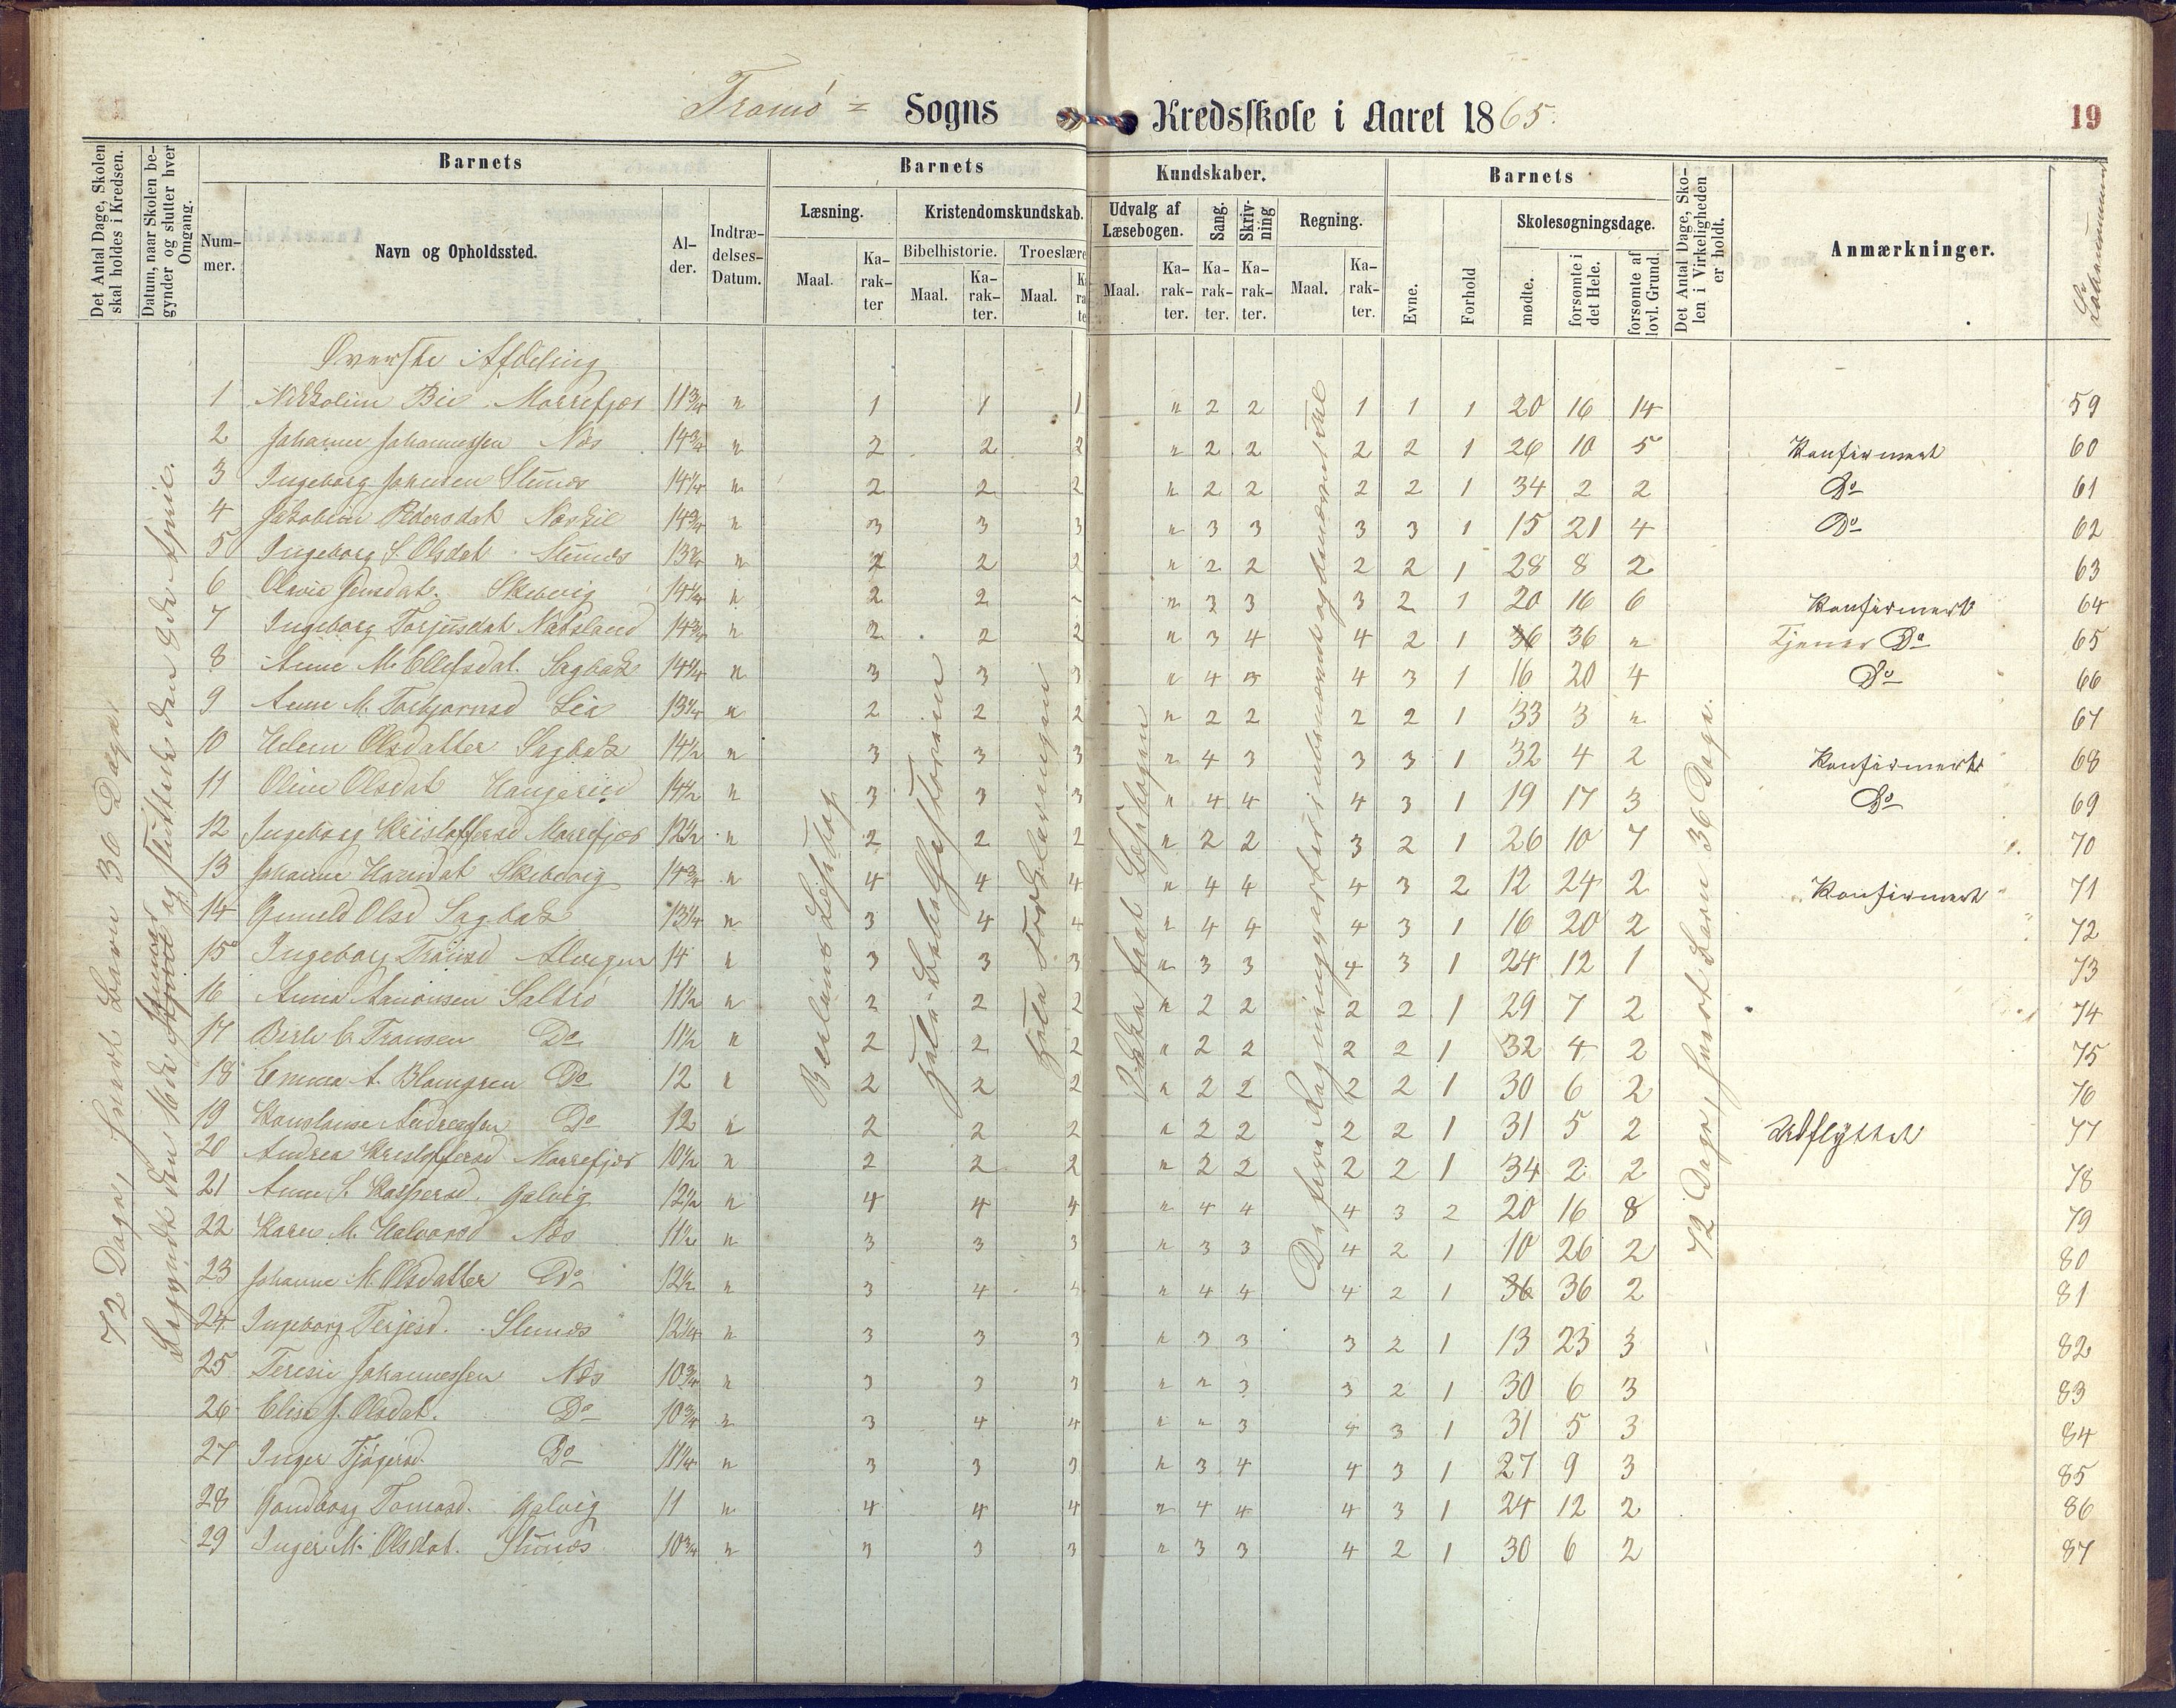 Tromø = Sogns Kredsskole i Aaret 1865.
19
Det Antal Dage, Skolen skal holdes i Kredsen.
Datum, naar Skolen begynder og slutter hver Omgang.
Barnets
Num-mer.
Navn og Opholdssted.
Al-der.
Indtræ-delses-Datum.
Barnets Kundskaber.
Læsning.
Maal.
Ka-rak-ter
Kristendomskundskab.
Bibelhistorie.
Maal.
Ka-rak-ter.
Troeslære
Maal.
Udvalg af Læsebogen.
Maal.
Ka-rak-ter.
Sang.
Ka-rak-ter.
Skriv-ning
Ka-rak-ter.
Regning.
Maal.
Ka-rak-ter.
Barnets
Evne.
Forhold
Skolesøgningsdage.
mødte.
forsømte i det Hele.
forsømte af lovl. Grund.
Det Antal Dage, Skolen i Virkeligheden er holdt.
Anmærkninger.
Løbenummer
72 Dage, hvert Barn 36 Dage.
Begyndt den 16de Januar og sluttede den 8de April.
Øverste Afdeling
1 Nikoline Bie Marrefjær 11 3/4 " 1 1 1 " 2 2 1 1 1 20 16 14 59
2 Johanne Johannessen Næs 14 3/4 " 2 2 2 " 2 2 2 2 1 26 10 5 Konfirmert 60
3 Ingeborg Johnsen Stuenæs 14 1/4 " 2 2 2 " 2 2 2 2 1 34 2 2 Do 61
4 Jakobine Pedersdat Naeskil 14 3/4 " 3 3 3 " 3 3 3 3 1 15 21 4 Do 62
5 Ingeborg S. Olsdat Stuenæs 13 3/4 " 2 2 2 " 2 2 2 2 1 28 8 2 63
6 Olavia Jensdat. Skibevig 14 1/4 " 2 2 - " 3 3 3 2 1 20 16 6 Konfirmert 64
7 Ingeborg Torjusdat 14 3/4 " 2 2 2 " 3 4 4 2 1 36 36 " Tjener Do 65
8 Anne M. Ellefsdat. Sagbak 14 1/4 " 3 3 3 " 4 3 4 3 1 16 20 4 Do 66
9 Anne M. Torbjørnsd Lia 13 1/4 " 2 2 2 " 2 2 2 2 1 33 3 " 67
10 Helene Olsdatter Sagbak 14 1/2 " 3 3 3 " 4 3 3 3 1 32 4 2 Konfirmert 68
11 Oline Olsdat Haugerud 14 1/2 " 3 3 3 " 4 4 4 3 1 19 17 3 Do 69
12 Ingeborg Kristoffersd Marrefjær 12 1/2 " 2 2 2 " 2 2 3 2 1 26 10 7 70
13 Johanne Skibevig 14 3/4 " 4 4 4 " 4 4 4 3 2 12 24 2 Konfirmert 71
14 Gunild Olsd Sagbak 13 1/4 " 3 4 4 " 4 4 4 3 1 16 20 2 72
15 Ingeborg Alvigen 14 " 3 3 3 " 3 3 4 3 1 24 12 1 73
16 Anna Aanonsen Saltrø 11 1/2 " 2 2 2 " 2 2 2 2 1 29 7 2 74
17 Berte C. Do 11 1/2 " 2 2 2 " 2 2 2 2 1 32 4 2 75
18 Emma A. Blomgren Do 12 " 2 2 2 " 2 2 2 2 1 30 6 2 76
19 Konstanse Andreassen Do 12 " 2 2 2 " 2 2 2 2 1 31 5 2 Udflyttet 77
20 Andrea Kristoffersd Marrefjær 10 1/2 " 2 2 2 " 2 2 2 2 1 34 2 2 78
21 Anne S. Kaspersd. Galvig 12 1/2 " 4 4 4 " 4 4 4 3 2 20 16 8 79
22 Karen M. Halvorsd Næs 11 1/2 " 3 3 3 " 3 3 4 2 1 10 26 2 80
23 Johanne M. Olsdatter Do 12 1/2 " 3 4 4 " 4 4 4 2 1 36 36 2 81
24 Ingeborg Terjesd. Stuenæs 12 1/4 " 3 3 3 " 3 3 3 2 1 13 23 3 82
25 Teresie Johannessen Næs 10 3/4 " 3 3 3 " " 3 3 2 1 30 6 3 83
26 Elise J. Olsdat. Do 10 3/4 " 3 4 4 " " 3 4 3 1 31 5 3 84
27 Inger Tjøgersd. Do 11 1/4 " 3 3 3 " 3 4 4 3 1 27 9 3 85
28 Gondborg Tomasd. Galvig 11 " 4 4 4 " 4 4 4 3 1 24 12 2 86
29 Inger M. Olsdat. Stuenæs 10 3/4 " 3 3 3 " 3 3 4 2 1 30 6 2 87
hele Bibelhistorien
hele Forklaringen
Læsebogen
De fire Regningsarter i ubenævnt og benævnt Tal
72 Dage, hvert Barn 36 Dage.